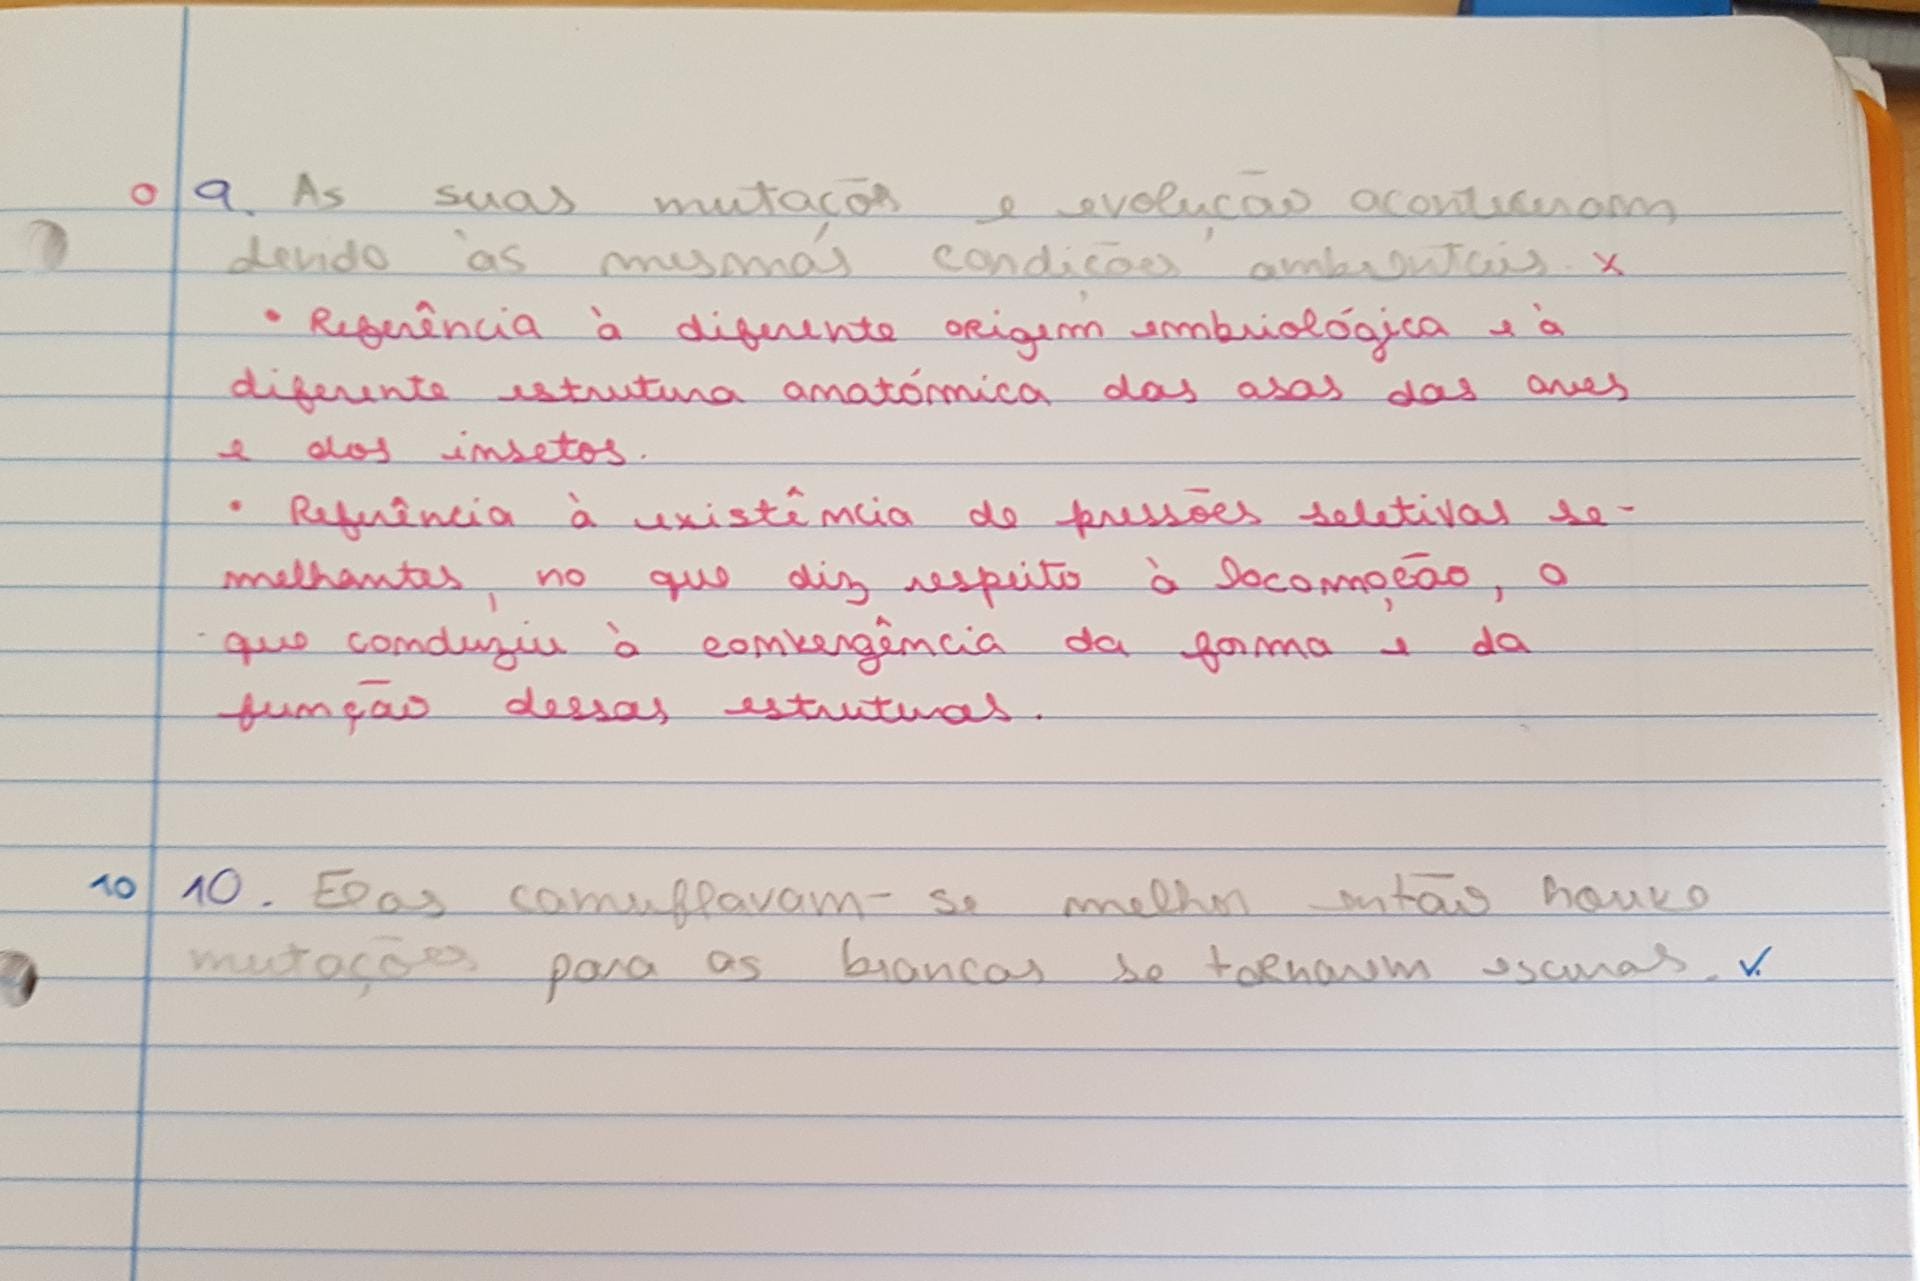 0 9. As suas mutações e evolução aconteceram
devido às mesmas condições ambientais. x
• Referência à diferente origem embriológica e à
diferente estrutura anatómica das asas das aves
e dos insetos.
• Referência à existência de pressões seletivas se-
melhantes, no que diz respeito à locomoção, o
que conduziu à convergência da forma e da
função dessas estruturas.
10 10. Elas camuflavam-se melhor então houve
mutações para as brancas se tornarem escuras. ✓